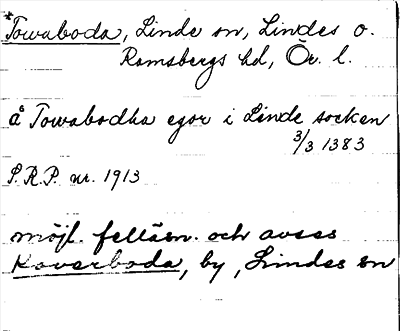 *Towaboda, Linde sn, Lindes o.
Ramsbergs hd, Ör. l.
å Towabodha egor i Linde socken
3/3 1383
S.R.P. nr. 1913
möjl. felläsn. och avses
Kaverboda, by, Lindes sn